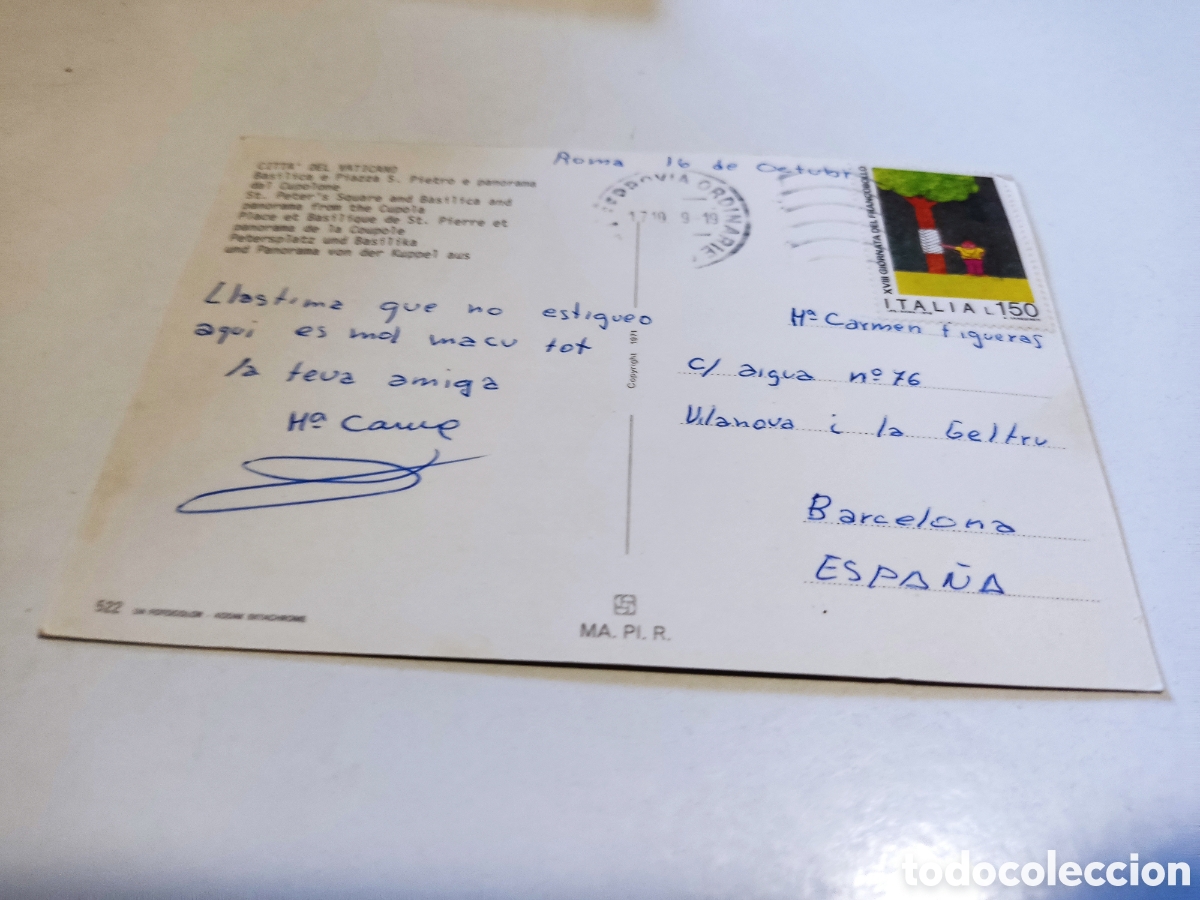 Roma 16 de Octubr
CITTA' DEL VATICANO
Basilica e Piazza S. Pietro e panorama
dal Cupolone
St. Peter's Square and Basilica and
panorama from the Cupola
Place et Basilique de St. Pierre et
panorama de la Coupole
Petersplatz und Basilika
und Panorama von der Kuppel aus
Llastima que no estigueo
aqui es mol macu tot
la teva amiga
Mª Carme
522
MA. PI. R.
Copyright 1971
FERROVIA ORDINARIE
XVIII GIORNATA DEL FRANCOBOLLO
ITALIA L.150
Mª Carmen Figueras
c/ aigua nº 76
Vilanova i la Geltru
Barcelona
ESPAÑA
todocoleccion